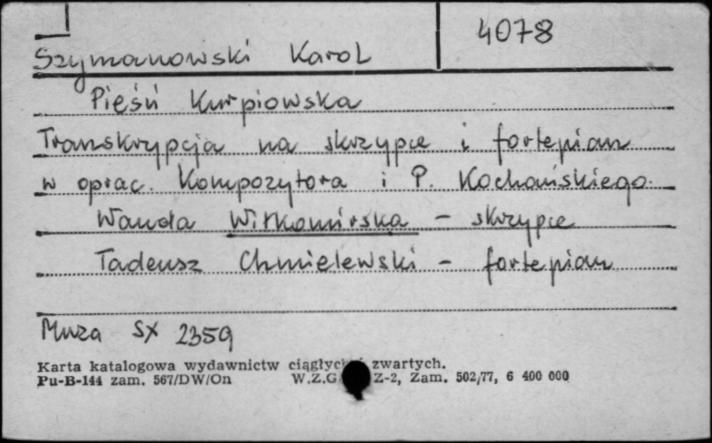 4078
Szymanowski Karol
Pieśń Kurpiowska
Transkrypcja na skrzypce i fortepian
w oprac. Kompozytora i P. Kochańskiego.
Wanda Wiłkomirska - skrzypce
Tadeusz Chmielewski - fortepian
Muza SX 2359
Karta katalogowa wydawnictw ciągłych i zwartych.
Pu-B-144 zam. 567/DW/On W.Z.G. Z-2, Zam. 502/77, 6 400 000